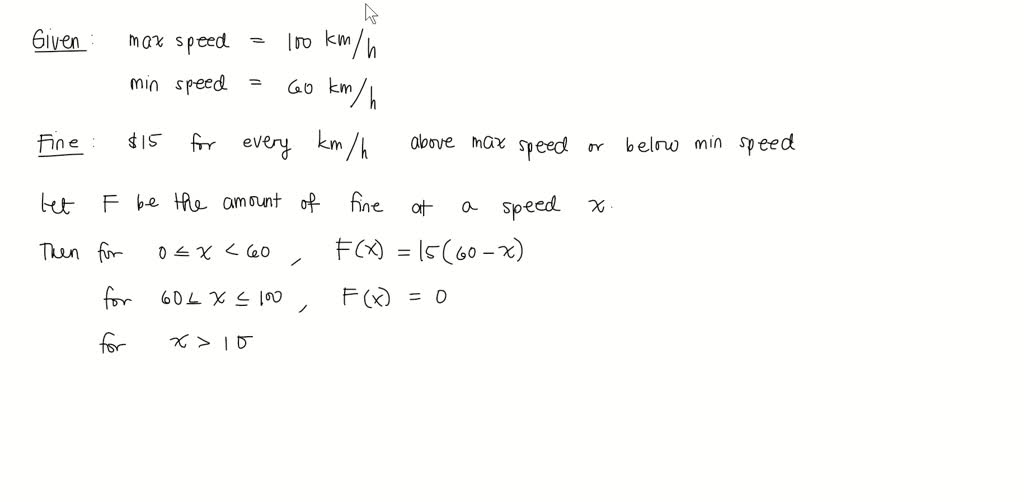 Given : max speed = 100 km/h
min speed = 60 km/h
Fine : $15 for every km/h above max speed or below min speed
Let F be the amount of fine at a speed x.
Then for 0 ≤ x < 60 , F(x) = 15(60 - x)
for 60 ≤ x ≤ 100 , F(x) = 0
for x > 10